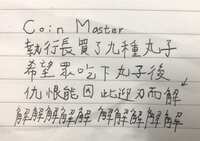 Coin Master
執行長買了九種丸子
希望眾吃下丸子後
仇恨能因此迎刃而解
解解解解解解 解解解解解解